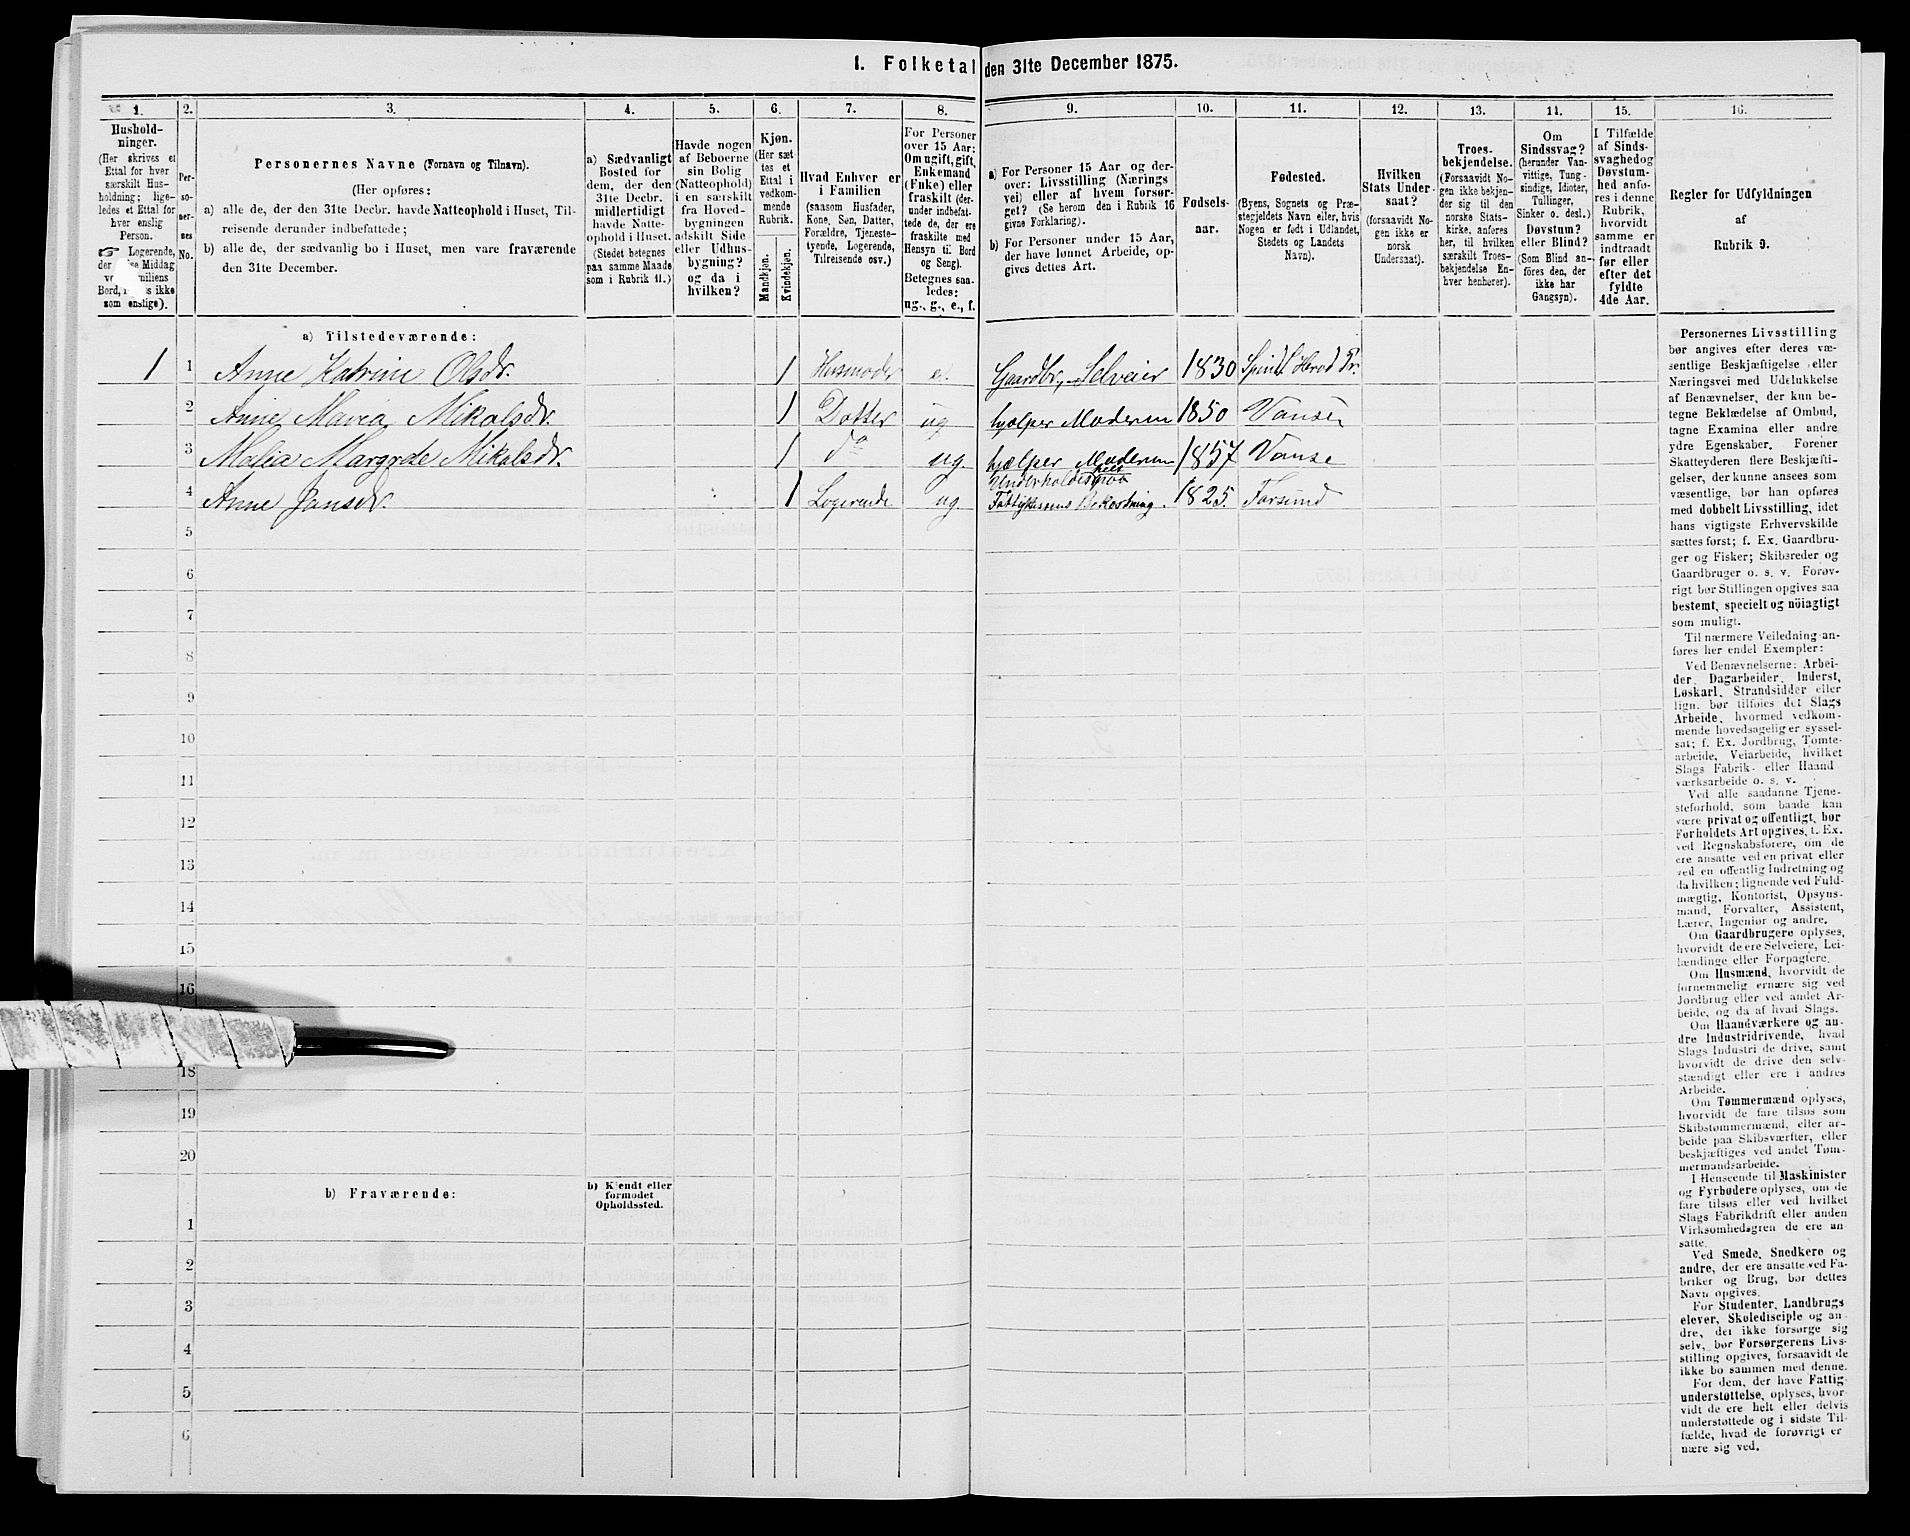 I. Folketal den 31te December 1875.
1. 2. 3. 4. 5. 6. 7. 8. 9. 10. 11. 12. 13. 11. 15. 16.
Hushold-
ninger.
(Her skrives et
Ettal for hver
særskilt Hus-
holdning; lige-
ledes et Ettal for
hver enslig
Person.
☞ Logerende,
der Middag
Bord, ikke
som enslige).
Per-
so-
ner-
nes
No.
Personernes Navne (Fornavn og Tilnavn).
(Her opføres:
a) alle de, der den 31te Decbr. havde Natteophold i Huset, Til-
reisende derunder indbefattede;
b) alle de, der sædvanlig bo i Huset, men vare fraværende
den 31te December.
a) Sædvanligt
Bosted for
dem, der den
31te Decbr.
midlertidigt
havde Natte-
ophold i Huset.
(Stedet betegnes
paa samme Maade
som i Rubrik 11.)
Havde nogen
af Beboerne
sin Bolig
(Natteophold)
i en særskilt
fra Hoved-
bygningen
adskilt Side
eller Udhus-
bygning?
og da i
hvilken?
Kjøn.
(Her sæt
tes et
Ettal i
vedkom-
mende
Rubrik.
Mandkjøn.
Kvindekjøn.
Hvad Enhver er
i Familien
(saasom Husfader,
Kone, Søn, Datter,
Forældre, Tjeneste-
tyende, Logerende,
Tilreisende osv.)
For Personer
over 15 Aar:
Om ugift, gift,
Enkemand
(Fuke) eller
fraskilt (der-
under indbefat-
tede de, der ere
fraskilte med
Hensyn til Bord
og Seng).
Betegnes saa-
ledes:
ug., g., e., f.
a) For Personer 15 Aar og der-
over: Livsstilling (Nærings
vei) eller af hvem forsør-
get? (Se herom den i Rubrik 16
givne Forklaring).
b) For Personer under 15 Aar,
der have lønnet Arbeide, op-
gives dettes Art.
Fødsels-
aar.
Fødested.
(Byens, Sognets og Præ-
stegjeldets Navn eller, hvis
Nogen er født i Udlandet,
Stedets og Landets
Navn).
Hvilken
Stats Under-
saat?
(forsaavidt No-
gen ikke er
norsk
Undersaat).
Troes-
bekjendelse.
(Forsaavidt No-
gen ikke bekjen-
der sig til den
norske Stats-
kirke, anføres
her, til hvilken
særskilt Troes-
bekjendelse En-
hver henhører).
Om
Sindssvag?
(herunder Van-
vittige, Tung-
sindige, Idioter,
Tullinger,
Sinker o. desl.)
Døvstum?
eller Blind?
(Som Blind an-
føres den, der
ikke har
Gangsyn).
I Tilfælde
af Sinds-
svaghed og
Døvstum-
hed anfø-
res i denne
Rubrik,
hvorvidt
samme er
indtraadt
før eller
efter det
fyldte
4de Aar.
Regler for Udfyldningen
af
Rubrik 9.
a) Tilstedeværende:
1 1 Anne Katrine Olsdr. 1 Husmoder e. Gaardbr, Selveier 1830 Herad Pr.
2 Anne Maria Mikalsdr. 1 Dotter ug hjælper Moderen 1850 Vanse
3 Malia Margrete Mikalsdr. 1 do ug. hjælper Moderen 1857 Vanse
4 Anne Jansdr. 1 Logerende ug. Underholdes paa Fattigkassens Bekostning. 1825. Farsund
5
6
7
8
9
10
11
12
13
14
15
16
18
19
20
b) Fraværende:
b) Kjendt eller
formodet
Opholdssted.
1
2
3
4
5
6
Personernes Livsstilling
bør angives efter deres væ-
sentlige Beskjæftigelse eller
Næringsvei med Udelukkelse
af Benævnelser, der kun be-
tegne Beklædelse af Ombud,
tagne Examina eller andre
ydre Egenskaber. Forener
Skatteyderen flere Beskjæfti-
gelser, der kunne ansees som
væsentlige, bør han opføres
med dobbelt Livsstilling, idet
hans vigtigste Erhvervskilde
sættes først; f. Ex. Gaardbru-
ger og Fisker; Skibsreder og
Gaardbruger o. s. v. Forøv-
rigt bør Stillingen opgives saa
bestemt, specielt og nöiagtigt
som muligt.
Til nærmere Veiledning an-
føres her endel Exempler:
Ved Benævnelserne: Arbei-
der, Dagarbeider, Inderst,
Løskarl, Strandsidder eller
lign. bør tilføies det Slags
Arbeide, hvormed vedkom-
mende hovedsagelig er syssel-
sat; f. Ex. Jordbrug, Tomte-
arbeide, Veiarbeide, hvilket
Slags Fabrik- eller Haand
værksarbeide o. s. v.
Ved alle saadanne Tjene-
steforhold, som baade kan
være privat og offentligt, bør
Forholdets Art opgives, t. Ex.
ved Regnskabsførere, om de
ere ansatte ved en privat eller
ved en offentlig Indretning og
da hvilken; lignende ved Fuld-
mægtig, Kontorist, Opsyns-
mand, Forvalter, Assistent,
Lærer, Ingeniør og andre.
Om Gaardbrugere oplyses,
hvorvidt de ere Selveiere, Lei-
lændinge eller Forpagtere.
Om Husmænd, hvorvidt de
fornemmelig ernære sig ved
Jordbrug eller ved andet Ar-
beide, og da af hvad Slags.
Om Haandværkere og an-
dre Industridrivende, hvad
Slags Industri de drive, samt
hvorvidt de drive den selv-
stændigt eller ere i andres
Arbeide.
Om Tømmermænd oplyses,
hvorvidt de fare tilsøs som
Skibstømmermænd, eller ar-
beide paa Skibsværfter, eller
beskjæftiges ved andet Tøm-
mermandsarbeide.
I Henseende til Maskinister
og Fyrbødere oplyses, om de
fare tilsøs eller ved hvilket
Slags Fabrikdrift eller anden
Virksomhedsgren de ere an-
satte.
Ved Smede, Snedkere og
andre, der ere ansatte ved Fa-
briker og Brug, bør dettes
Navn opgives.
For Studenter, Landbrugs
elever, Skoledisciple og an-
dre, der ikke forsørge sig
selv, bør Forsørgerens Livs-
stilling opgives, forsaavidt de
ikke bo sammen med denne.
For dem, der have Fattig-
understøttelse, oplyses, hvor-
vidt de ere helt eller delvis
understøttede og i sidste Til-
fælde, hvad de forøvrigt er
nære sig ved.